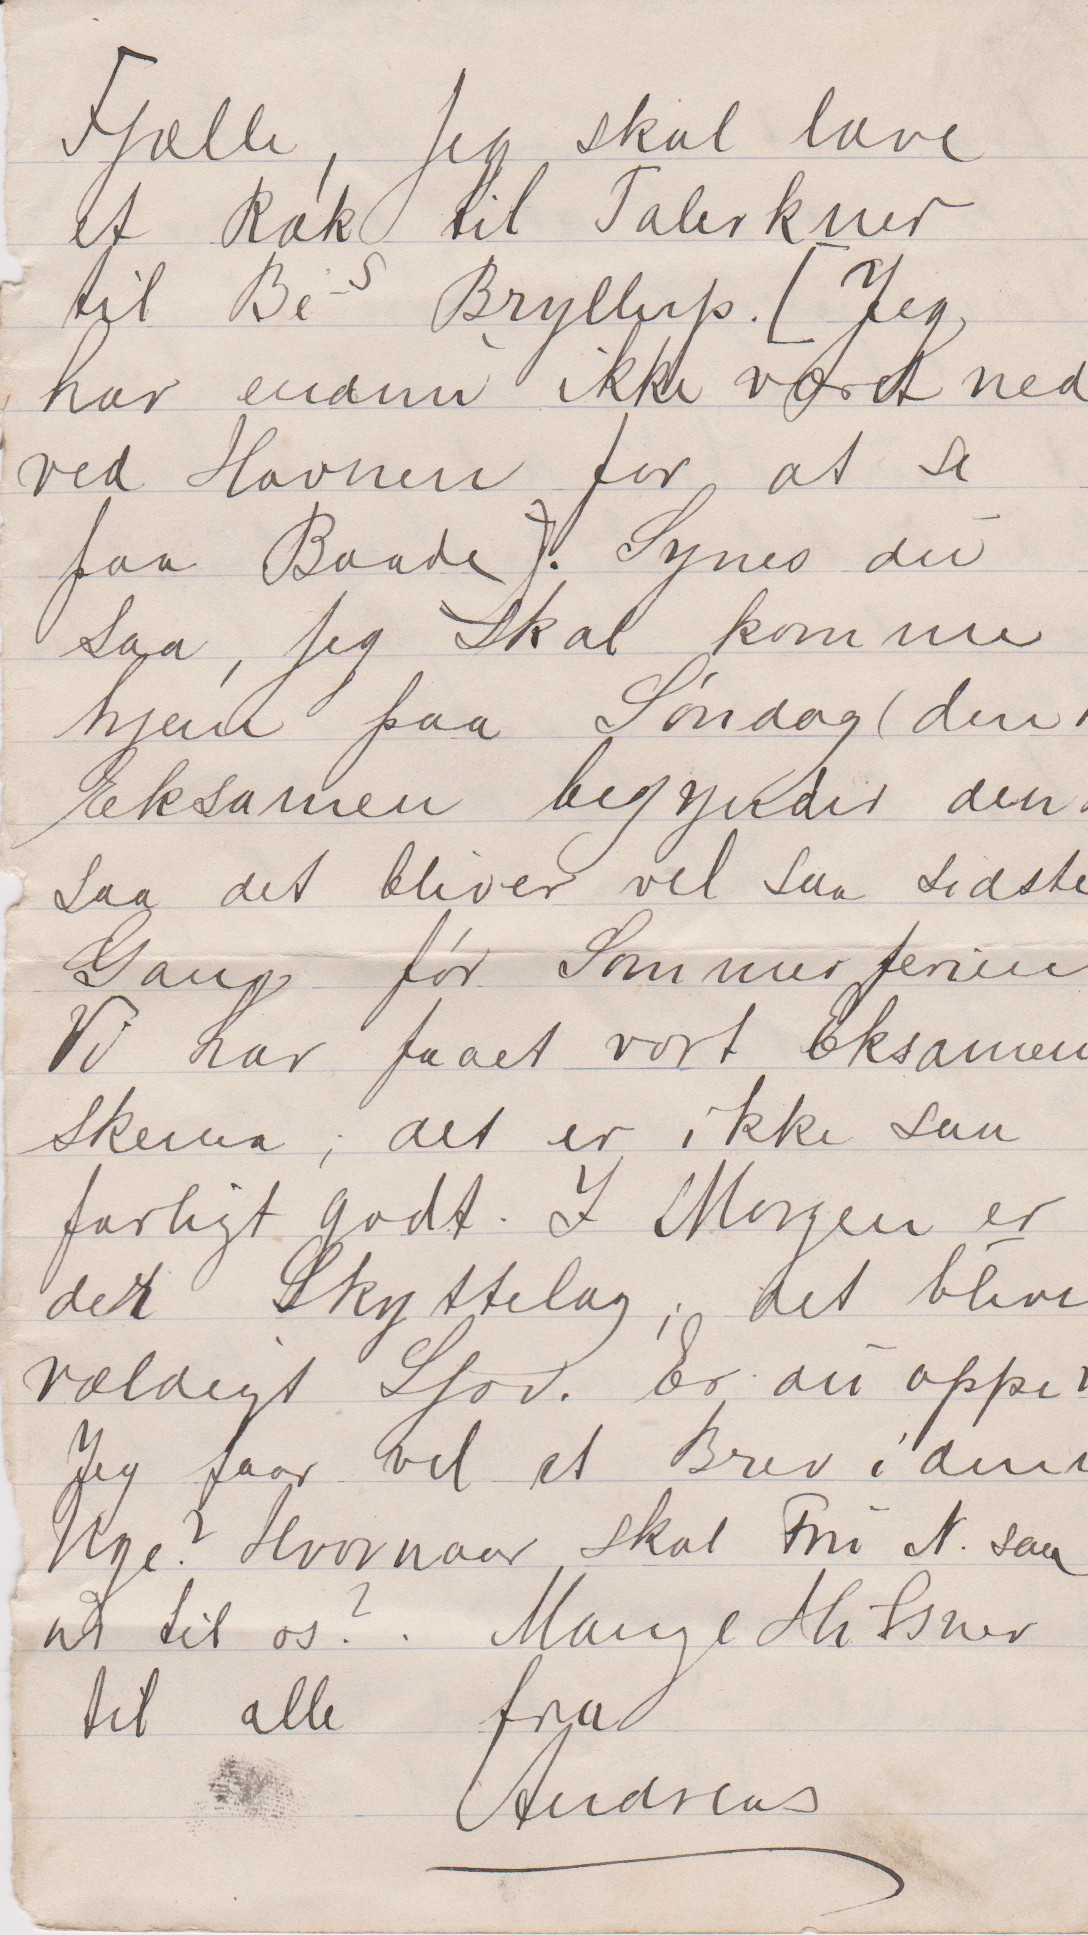 Fjælle, Jeg skal lave
et Rak til Talerkner
til Be-s Bryllup. [Jeg
har endnu ikke været ned
ved Havnen for at se
paa Baade]. Synes du
saa, jeg skal komme
hjem paa Søndag (den
Eksamen begynder den
saa det bliver vel saa sidste
Gang før Sommerferien
Vi har faaet vort Eksamen
skema; det er ikke saa
farligt godt. I Morgen er
det Skyttelag; det blive
vældigt Sjov. Er du oppe
Jeg faar vel et Brev i den
Uge? Hvornaar skal Fru N. saa
ud til os?. Mange Hilsner
til alle fra
Andreas